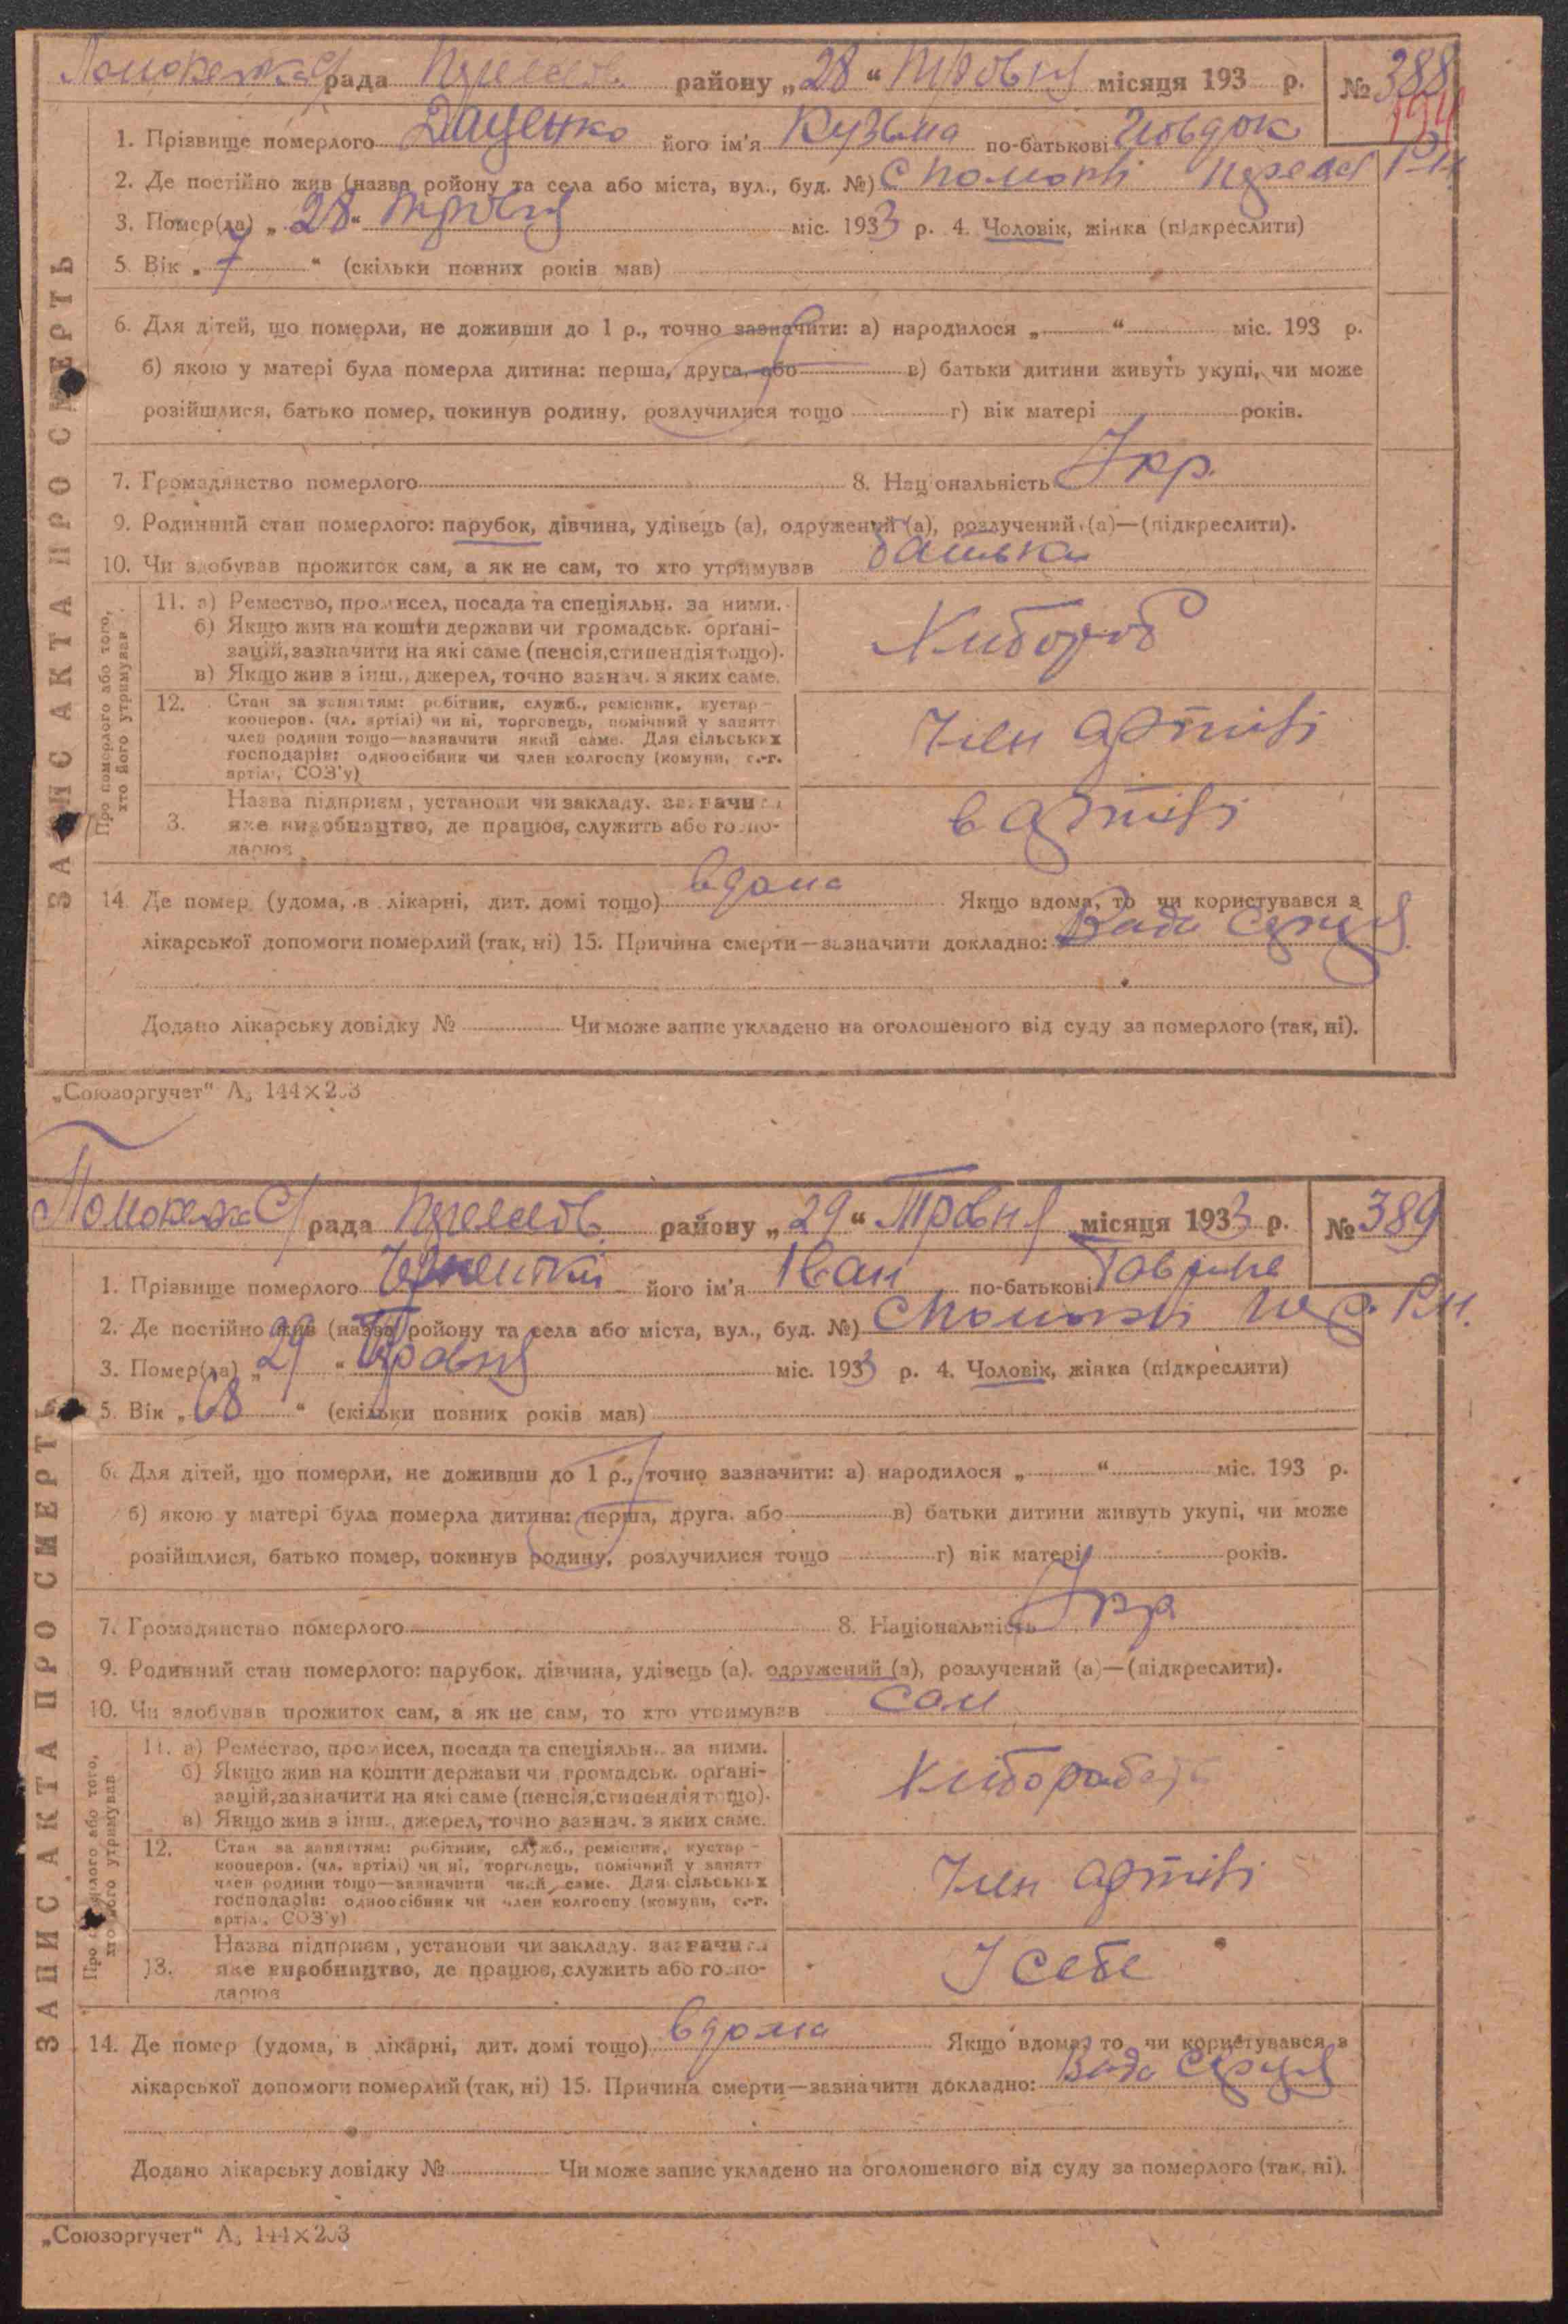 рада район у „28“ Травня місяця 193 р. № 388
1. Прізвище померлого Даценко його ім'я Кузьма по-батькові
2. Де постійно жив (назва ройону та села або міста, вул., буд. №) с Помоклі Переясл Р-н
3. Помер(ла) „28“ Травня міс. 1933 р. 4. Чоловік, жінка (підкреслити)
5. Вік „7“ (скільки повних років мав)
6. Для дітей, що померли, не доживши до 1 р., точно зазначити: а) народилося „ “ міс. 193 р.
б) якою у матері була померла дитина: перша, друга, або в) батьки дитини живуть укупі, чи може
розійшлися, батько помер, покинув родину, розлучилися тощо г) вік матері років.
7. Громадянство померлого 8. Національність Укр.
9. Родинний стан померлого: парубок, дівчина, удівець (а), одружений (а), розлучений (а)—(підкреслити).
10. Чи здобував прожиток сам, а як не сам, то хто утримував батька
ЗАПИС АКТА ПРО СМЕРТЬ
Про померлого або того, хто його утримував
11. а) Ремество, промисел, посада та спеціяльн. за ними.
б) Якщо жив на кошти держави чи громадськ. орґані-
зацій, зазначити на які саме (пенсія, стипендія тощо).
в) Якщо жив з інш., джерел, точно зазнач. з яких саме.
Хлібороб
12. Стан за заняттям: робітник, служб., ремісник, кустар—
кооперов. (чл. артілі) чи ні, торговець, помічний у занятт
член родини тощо—зазначити який саме. Для сільських
господарів: одноосібник чи член колгоспу (комуни, с.-г.
артілі, СОЗ'у)
Член артілі
3. Назва підприєм, установи чи закладу. зазначити
яке виробництво, де працює, служить або госпо-
дарює
в артілі
14. Де помер (удома, в лікарні, дит. домі тощо) вдома Якщо вдома, то чи користувався з
лікарської допомоги померлий (так, ні) 15. Причина смерти—зазначити докладно: Вада серця
Додано лікарську довідку № Чи може запис укладено на оголошеного від суду за померлого (так, ні).
„Союзоргучет“ А₅ 144×203
рада району „29“ Травня місяця 1933 р. № 389
1. Прізвище померлого його ім'я Іван по-батькові
2. Де постійно жив (назва ройону та села або міста, вул., буд. №) с Помоклі Пер. Р.н.
3. Помер(ла) „29“ Травня міс. 1933 р. 4. Чоловік, жінка (підкреслити)
5. Вік „68“ (скільки повних років мав)
6. Для дітей, що померли, не доживши до 1 р., точно зазначити: а) народилося „ “ міс. 193 р.
б) якою у матері була померла дитина: перша, друга. або в) батьки дитини живуть укупі, чи може
розійшлися, батько помер, покинув родину, розлучилися тощо г) вік матері років.
7. Громадянство померлого 8. Національність Укр
9. Родинний стан померлого: парубок, дівчина, удівець (а), одружений (а), розлучений (а)—(підкреслити).
10. Чи здобував прожиток сам, а як не сам, то хто утримував сам
ЗАПИС АКТА ПРО СМЕРТЬ
Про померлого або того, хто його утримував
11. а) Ремество, промисел, посада та спеціяльн.. за ними.
б) Якщо жив на кошти держави чи громадськ. орґані-
зацій, зазначити на які саме (пенсія, стипендія тощо).
в) Якщо жив з інш., джерел, точно зазнач. з яких саме.
12. Стан за заняттям: робітник, служб., ремісник, кустар—
кооперов. (чл. артілі) чи ні, торговець, помічний у занятт
член родини тощо—зазначити який саме. Для сільських
господарів: одноосібник чи член колгоспу (комуни, с.-г.
артілі, СОЗ'у)
Член артілі
13. Назва підприєм, установи чи закладу. зазначити
яке виробництво, де працює, служить або госпо-
дарює
У себе
14. Де помер (удома, в лікарні, дит. домі тощо) вдома Якщо вдома, то чи користувався з
лікарської допомоги померлий (так, ні) 15. Причина смерти—зазначити докладно: Вада серця
Додано лікарську довідку № Чи може запис укладено на оголошеного від суду за померлого (так, ні).
„Союзоргучет“ А₅ 144×203